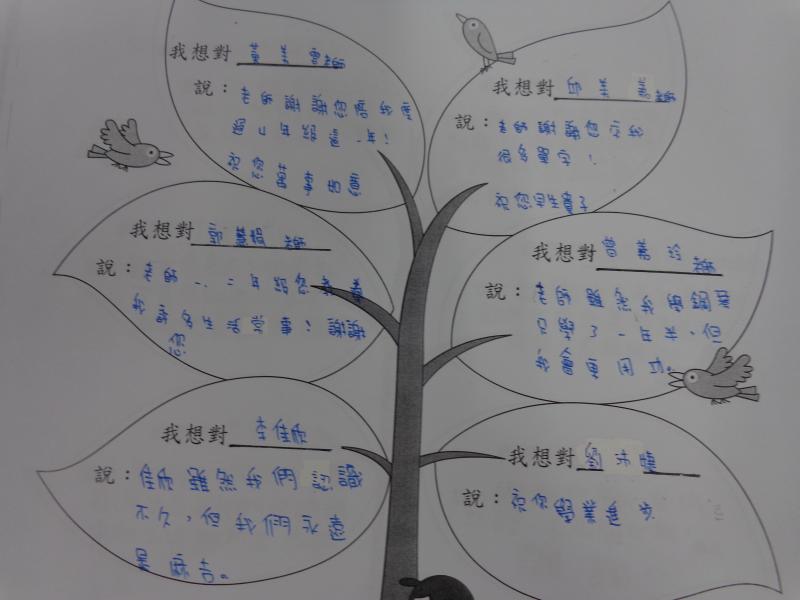 我想對 黃美雲老師
說：老師謝謝您陪我度
過了年級這一年！
祝您 健康如意
我想對 邱美老師
說：老師謝謝您交我
很多單字！
祝您早生貴子
我想對 郭慧娟老師
說：老師一、二年級您教導
我許多生活常事！謝謝
您
我想對 曾嘉玲老師
說：老師雖然我與鋼琴
只學了一年半，但
我會更用功。
我想對 李佳欣
說：佳欣雖然我們認識
不久，但我們永遠
是麻吉。
我想對 劉沛曉
說：祝你學業進步